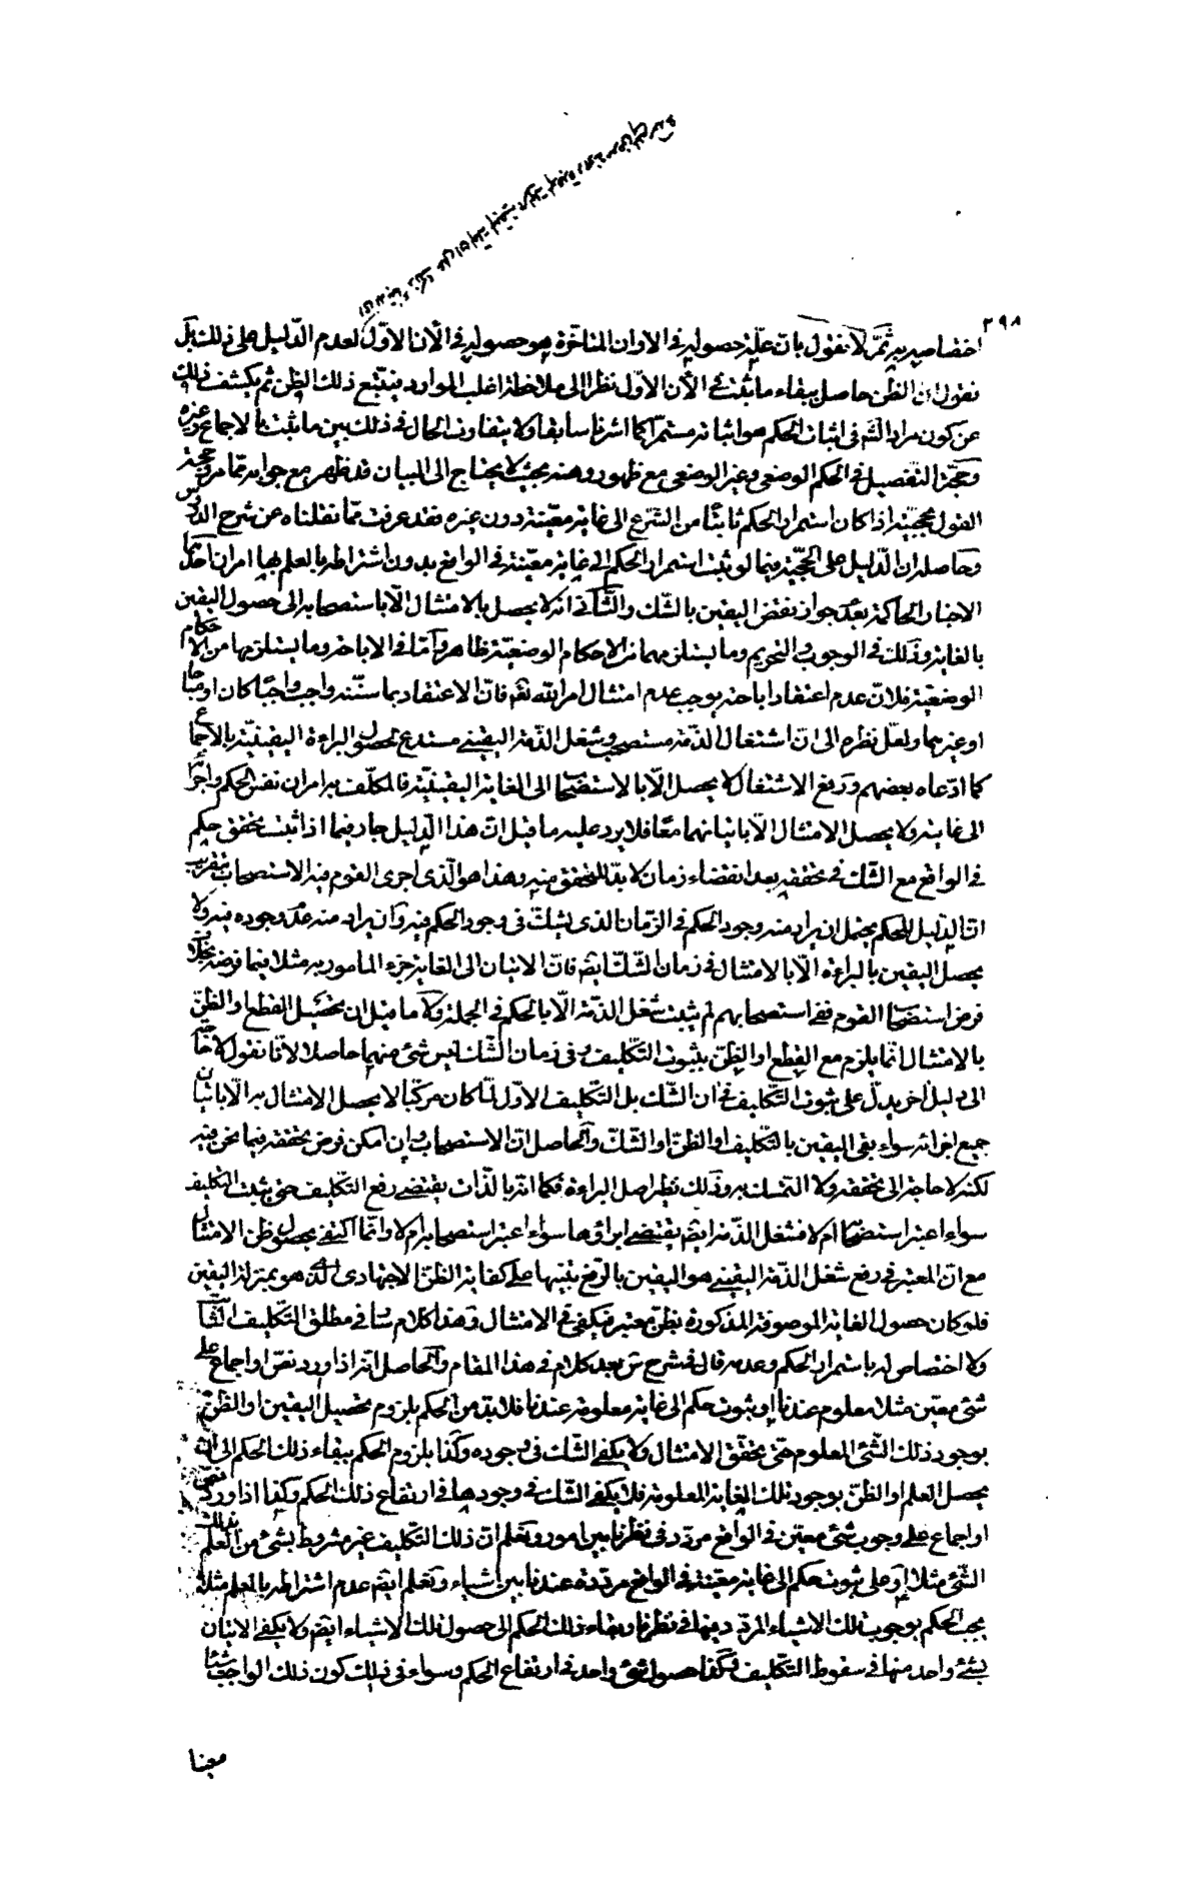 ٢٩٨
اختصاصه به ثمّ لا نقول بان علّية حصوله في الاوان المتاخرة هو حصوله في الآن الاوّل لعدم الدّليل على ذلك بل
نقول ان الظّن حاصل ببقاء ما ثبت في الآن الاوّل نظرا الى ملاحظة اغلب الموارد فيتبع ذلك الظن ثم يكشف ذلك
عن كون مراد الشّه في اثبات الحكم هو اثباته مستمرّا كما اشرنا سابقا ولا يتفاوت الحال في ذلك بين ما ثبت بالاجماع وغيره
وحجّة التّفصيل في الحكم الوضعي وغير الوضعي مع ظهور وهنه بحيث لا يحتاج الى البيان قد ظهر مع جوابه ممّا مرّ وحجّة
القول بحجيّته اذا كان استمرار الحكم ثابتا من الشّرع الى غاية معيّنة دون غيره فقد عرفت ممّا نقلناه عن شرح الدّروس
وحاصله ان الدّليل على الحجّية فيما لو ثبت استمرار الحكم الى غاية معيّنة في الواقع بدون اشتراطه بالعلم بها امران احدهما
الاخبار الحاكمة بعدم جواز نقض اليقين بالشّك والثّاني انه لا يحصل بالامتثال الّا باستصحابه الى حصول اليقين
بالغاية وذلك في الوجوب والتحريم وما يستلزمهما من الاحكام الوضعيّة ظاهر وامّا في الاباحة وما يستلزمها من الاحكام
الوضعيّة فلانّ عدم اعتقاد اباحته يوجب عدم امتثال امر الله تعه فانّ الاعتقاد بما سنّنه واجب واجبا كان او مباحا
او غيرهما ولعلّ نظره الى انّ اشتغال الذمّة مستصحب وشغل الذمّة اليقيني مستدع لحصول البراءة اليقينيّة بالاجماع
كما ادّعاه بعضهم ورفع الاشتغال لا يحصل الّا بالاستصحاب الى الغاية اليقينيّة فالمكلّف به امران نفس الحكم واجرائه
الى غايته ولا يحصل الامتثال الّا باتيانهما معا فلا يرد عليه ما قيل انّ هذا الدّليل جار فيما اذا ثبت تحقق حكم
في الواقع مع الشّك في تحققه بعد انقضاء زمان لا بدّ للتحقق منه وهذا هو الّذي اجرى القوم فيه الاستصحاب بتقريب
انّ الدّليل للحكم يحتمل ان يراد منه وجود الحكم في الزّمان الذي يشكّ في وجود الحكم فيه وان يراد منه عدم وجوده فيه ولا
يحصل اليقين بالبراءة الّا بالامتثال في زمان الشّك ايضه فانّ الاتيان الى الغاية جزء المامور به مثلا فيما فرضه بخلاف
فرض استصحاب القوم ففي استصحابهم لم يثبت شغل الذمّة الّا بالحكم في الجملة ولا ما قيل ان تحصيل القطع او الظنّ
بالامتثال انّما يلزم مع القطع او الظنّ بثبوت التّكليف وفي زمان الشّك ليس شئ منهما حاصلا لانّا نقول لا حاجة
الى دليل اخر يدلّ على ثبوت التّكليف في ان الشّك بل التّكليف الاوّل لمّا كان مركّبا لا يحصل الامتثال به الّا باتيان
جميع اجزائه سواء بقي اليقين بالتّكليف او الظنّ او الشّك والحاصل انّ الاستصحاب وان امكن فرض تحققه فيما نحن فيه
لكنه لا حاجة الى تحققه ولا التمسك به وذلك نظير اصل البراءة فكما انّه بالذّات يقتضي رفع التّكليف حتى يثبت التكليف
سواء اعتبر استصحابها ام لا فشغل الذّمة ايضه يقتضي ابراؤها سواء اعتبر استصحابه ام لا وانّما اكتفي بحصول ظن الامتثال
مع انّ المعتبر في رفع شغل الذّمة اليقيني هو اليقين بالرّفع تنبيها على كفاية الظنّ الاجتهادي الّذي هو بمنزلة اليقين
فلو كان حصول الغاية الموصوفة المذكورة بظنّ معتبر فيكفي في الامتثال وهذا كلام سار في مطلق التّكليف الثّابت
ولا اختصاص له باستمرار الحكم وعدمه قال في شرح س بعد كلام في هذا المقام والحاصل انّه اذا ورد نصّ او اجماع على
شئ معيّن مثلا معلوم عندنا او ثبوت حكم الى غاية معلومة عندنا فلا بدّ من الحكم بلزوم تحصيل اليقين او الظّن
بوجود ذلك الشّئ المعلوم حتى يتحقق الامتثال ولا يكفي الشّك في وجوده وكذا بلزوم الحكم ببقاء ذلك الحكم الى ان
يحصل العلم او الظنّ بوجود تلك الغاية المعلومة فلا يكفي الشّك في وجودها في ارتفاع ذلك الحكم وكذا اذا ورد نصّ
او اجماع على وجوب شئ معيّن في الواقع مردّد في نظرنا بين امور ونعلم انّ ذلك التّكليف غير مشروط بشئ من العلم بذلك
الشّئ مثلا او على ثبوت حكم الى غاية معيّنة في الواقع مردّدة عندنا بين اشياء ونعلم ايضه عدم اشتراطه بالعلم مثلا
يجب الحكم بوجوب تلك الاشياء المردّد فيها في نظرنا وبقاء ذلك الحكم الى حصول تلك الاشياء ايضه ولا يكفي الاتيان
بشئ واحد منها في سقوط التّكليف وكذا حصول شئ واحد في ارتفاع الحكم وسواء في ذلك كون ذلك الواجب شيئا
معينا